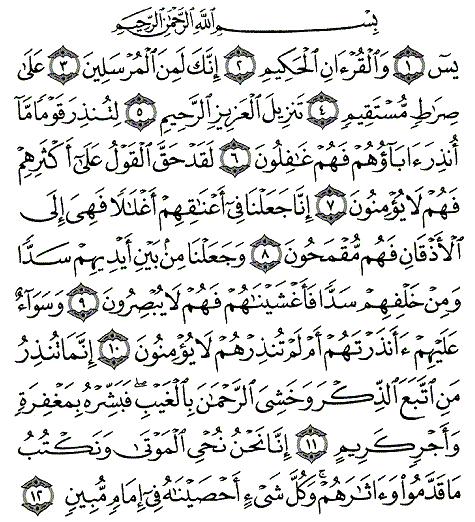 بِسْمِ ٱللَّهِ ٱلرَّحْمَٰنِ ٱلرَّحِيمِ
يسٓ ١ وَٱلْقُرْءَانِ ٱلْحَكِيمِ ٢ إِنَّكَ لَمِنَ ٱلْمُرْسَلِينَ ٣ عَلَىٰ
صِرَٰطٍ مُّسْتَقِيمٍ ٤ تَنزِيلَ ٱلْعَزِيزِ ٱلرَّحِيمِ ٥ لِتُنذِرَ قَوْمًا مَّآ
أُنذِرَ ءَابَآؤُهُمْ فَهُمْ غَٰفِلُونَ ٦ لَقَدْ حَقَّ ٱلْقَوْلُ عَلَىٰٓ أَكْثَرِهِمْ
فَهُمْ لَا يُؤْمِنُونَ ٧ إِنَّا جَعَلْنَا فِىٓ أَعْنَٰقِهِمْ أَغْلَٰلًا فَهِىَ إِلَى
ٱلْأَذْقَانِ فَهُم مُّقْمَحُونَ ٨ وَجَعَلْنَا مِنۢ بَيْنِ أَيْدِيهِمْ سَدًّا
وَمِنْ خَلْفِهِمْ سَدًّا فَأَغْشَيْنَٰهُمْ فَهُمْ لَا يُبْصِرُونَ ٩ وَسَوَآءٌ
عَلَيْهِمْ ءَأَنذَرْتَهُمْ أَمْ لَمْ تُنذِرْهُمْ لَا يُؤْمِنُونَ ١٠ إِنَّمَا تُنذِرُ
مَنِ ٱتَّبَعَ ٱلذِّكْرَ وَخَشِىَ ٱلرَّحْمَٰنَ بِٱلْغَيْبِ ۖ فَبَشِّرْهُ بِمَغْفِرَةٍ
وَأَجْرٍ كَرِيمٍ ١١ إِنَّا نَحْنُ نُحْىِ ٱلْمَوْتَىٰ وَنَكْتُبُ
مَا قَدَّمُوا۟ وَءَاثَٰرَهُمْ ۚ وَكُلَّ شَىْءٍ أَحْصَيْنَٰهُ فِىٓ إِمَامٍ مُّبِينٍ ١٢